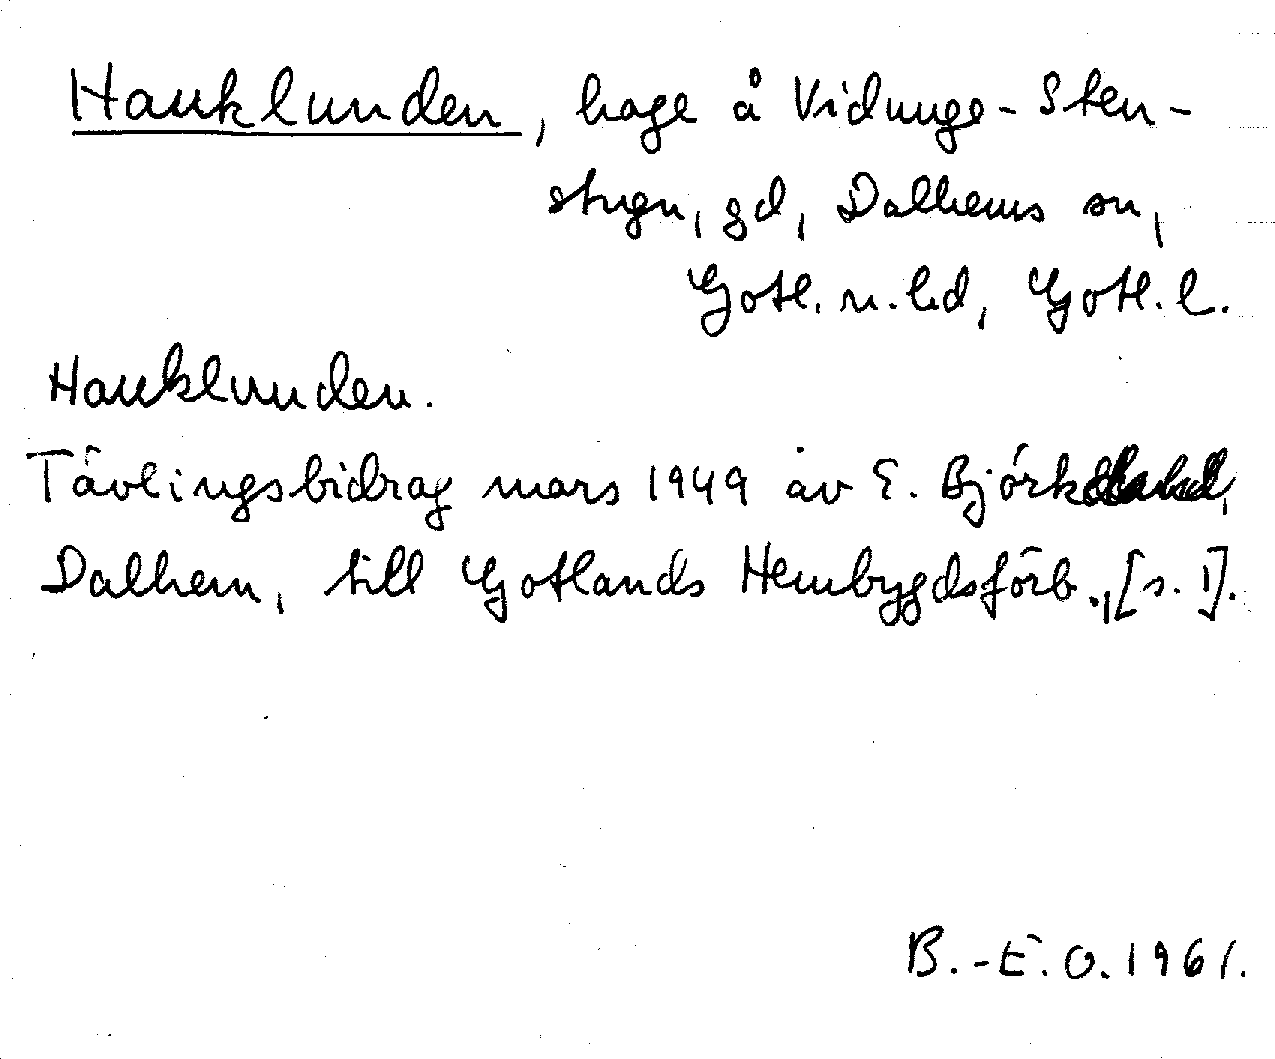 Hauklunden, hage å Vidunge-Sten-
stugu, gd, Dalhems sn,
Gotl. n. hd, Gotl. l.
Hauklunden.
Tävlingsbidrag mars 1949 av E.
Dalhem, till Gotlands Hembygdsförb., [s. 1].
B.-E. O. 1961.